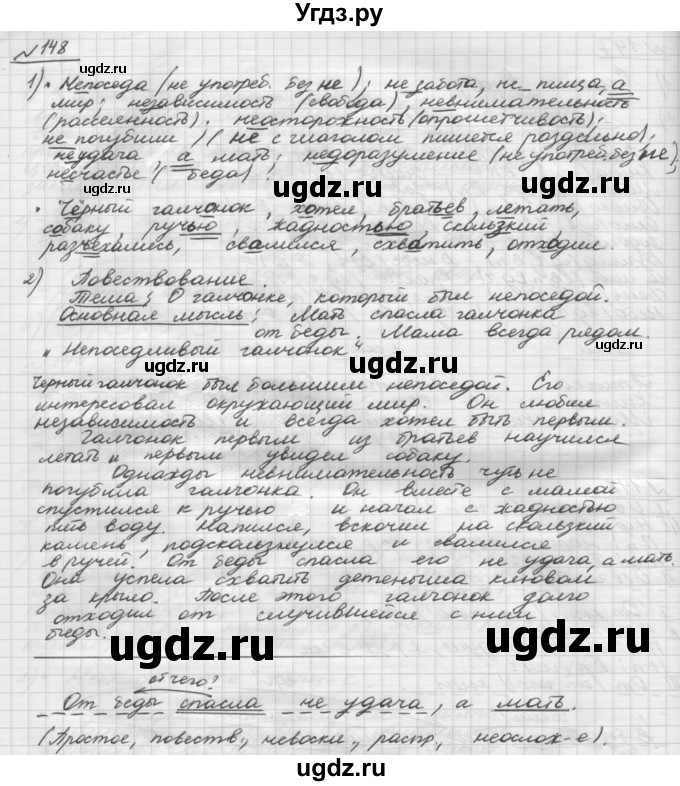 Угдз.ру
№148
1) • Непоседа (не употреб. без не); не забота, не пища, а
мир; независимость (свобода), невнимательность
(рассеянность); неосторожность (опрометчивость);
не погубили / (не с глаголом пишется раздельно);
неудача, а мать; недоразумение (не употреб. без не);
несчастье (беда)
• Чёрный галчонок, хотел, братьев, летать,
собаку, ручью, жадностью, скользкий,
разъехались, свалился, схватить, отходил.
2) Повествование.
Тема: О галчонке, который был непоседой.
Основная мысль: Мать спасла галчонка
от беды. Мама всегда рядом.
"Непоседливый галчонок"
Черный галчонок был большим непоседой. Его
интересовал окружающий мир. Он любил
независимость и всегда хотел быть первым.
Галчонок первым из братьев научился
летать и первым увидел собаку.
Однажды невнимательность чуть не
погубила галчонка. Он вместе с мамой
спустился к ручью и начал с жадностью
пить воду. Напился, вскочил на скользкий
камень, подскользнулся и свалился
в ручей. От беды спасла его не удача, а мать.
Она успела схватить детеныша клювом
за крыло. После этого галчонок долго
отходил от случившейся с ним
беды.
отчего?
От беды спасла не удача, а мать.
(Простое, повеств., невоскл., распр., неослож-е).
ugdz.ru
ugdz.ru
ugdz.ru
ugdz.ru
ugdz.ru
ugdz.ru
ugdz.ru
ugdz.ru
ugdz.ru
ugdz.ru
ugdz.ru
ugdz.ru
ugdz.ru